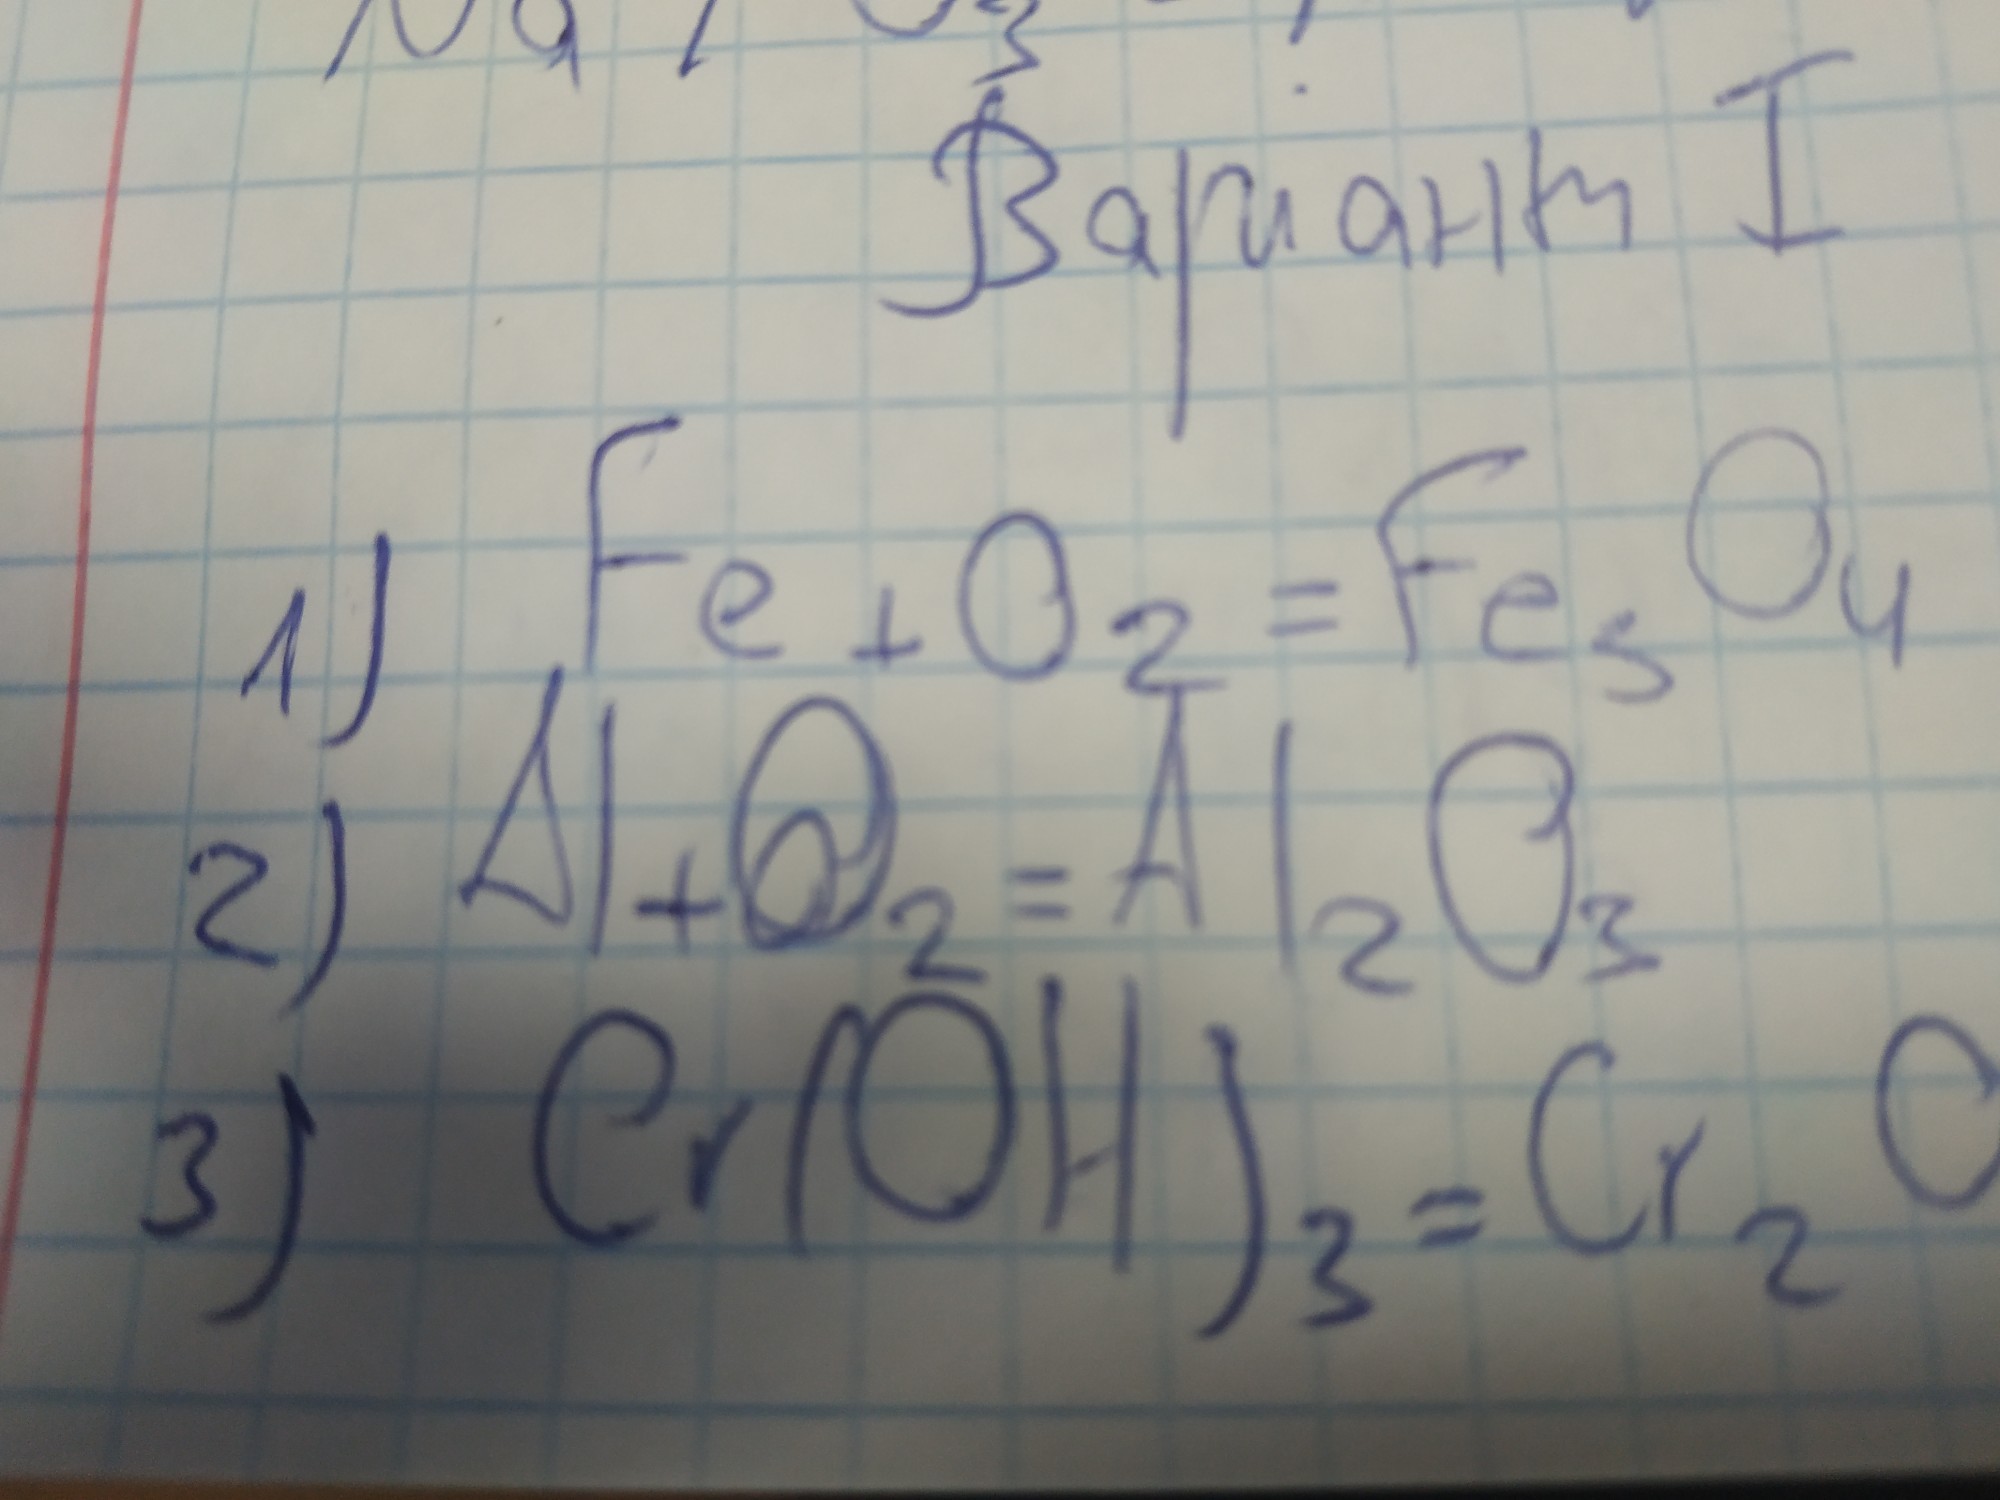 Вариант I
1) Fe + O₂ = Fe₃O₄
2) Al + O₂ = Al₂O₃
3) Cr(OH)₃ = Cr₂O